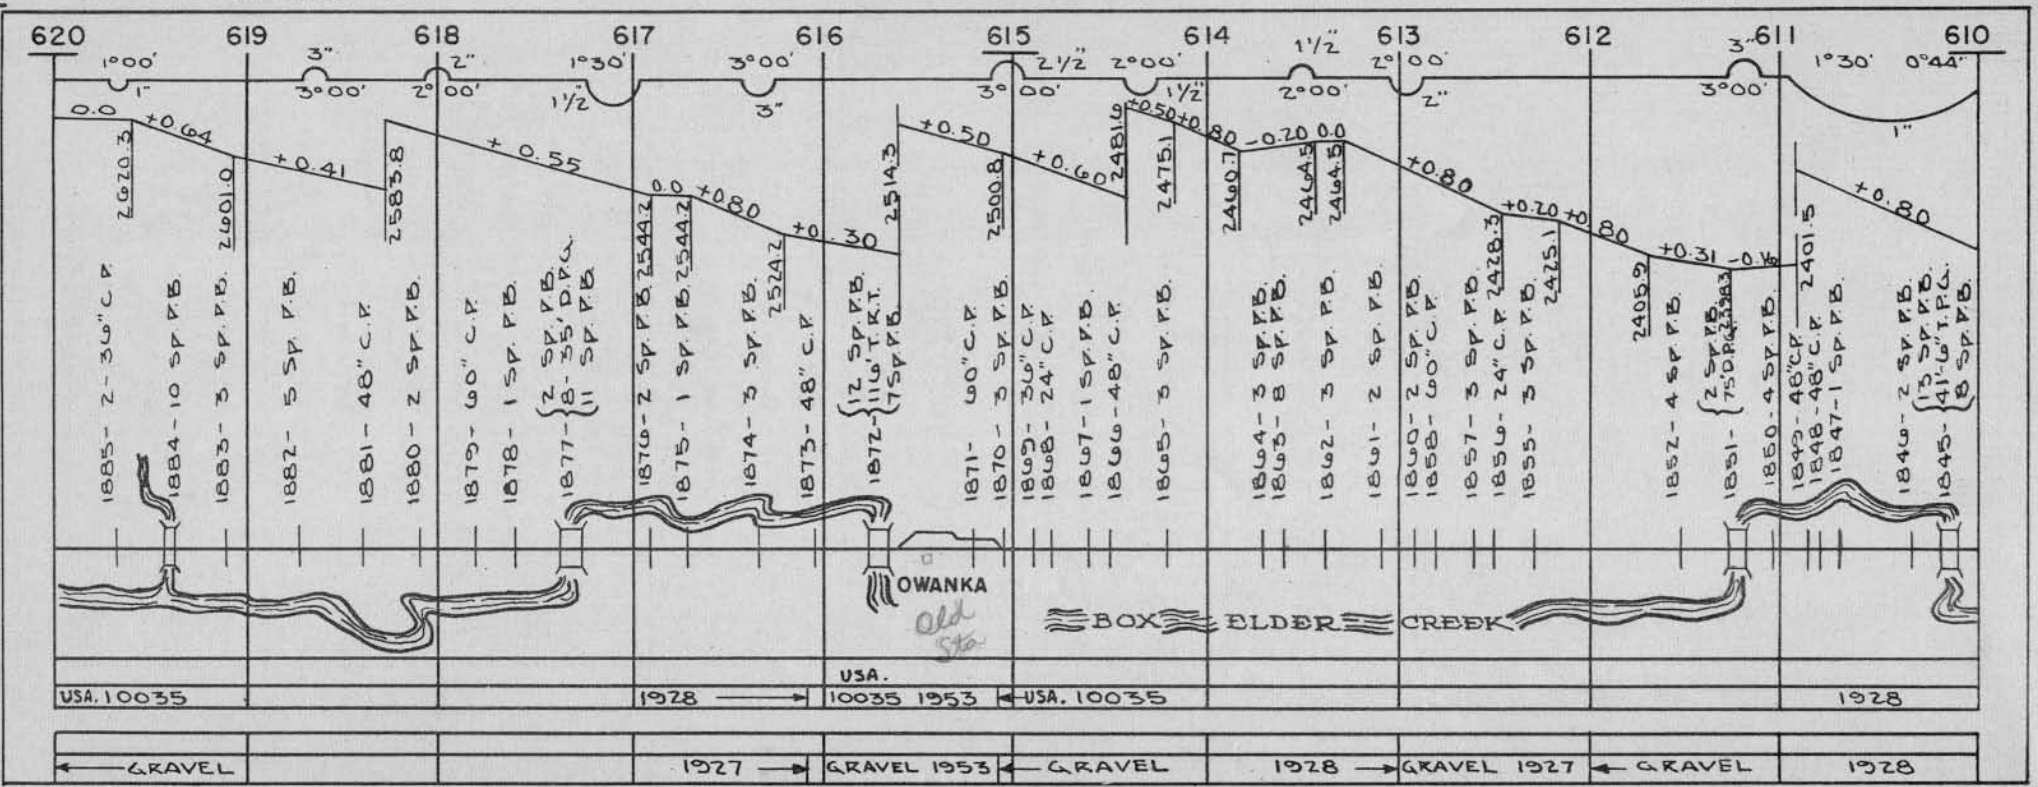 620 619 618 617 616 615 614 613 612 611 610
1°00' 1" 3" 3°00' 2" 2°00' 1°30' 1 1/2" 3°00' 3" 2 1/2" 3°00' 2°00' 1 1/2" 1 1/2" 2°00' 2°00' 2" 3" 3°00' 1°30' 0°44' 1"
0.0 +0.64 +0.41 +0.55 0.0 +0.80 +0.30 +0.50 +0.60 +0.50 +0.80 -0.20 0.0 +0.80 +0.20 +0.80 +0.31 -0.16 +0.80
2620.3 2601.0 2583.8 2544.2 2544.2 2524.2 2514.3 2500.8 2481.6 2475.1 2460.7 2464.5 2464.5 2428.3 2425.1 2405.9 2398.3 2401.5
1885-2-36" C.P.
1884-10 Sp. P.B.
1883-3 Sp. P.B.
1882-5 Sp. P.B.
1881-48" C.P.
1880-2 Sp. P.B.
1879-60" C.P.
1878-1 Sp. P.B.
1877-
2 Sp. P.B.
8-35' D.P.G.
11 Sp P.B.
1876-2 Sp. P.B.
1875-1 Sp. P.B.
1874-3 Sp. P.B.
1873-48" C.P.
1872-
12 Sp. P.B.
116' T.R.T.
7 Sp. P.B.
1871-60" C.P.
1870-3 Sp. P.B.
1869-36" C.P.
1868-24" C.P.
1867-1 Sp P.B.
1866-48" C.P.
1865-3 Sp. P.B.
1864-3 Sp. P.B.
1863-8 Sp. P.B.
1862-3 Sp. P.B.
1861-2 Sp. P.B.
1860-2 Sp. P.B.
1858-60" C.P.
1857-3 Sp. P.B.
1856-24" C.P.
1855-3 Sp. P.B.
1852-4 Sp. P.B.
1851-
2 Sp. P.B.
75' D.P.G.
1850-4 Sp. P.B.
1849-48" C.P.
1848-48" C.P.
1847-1 Sp. P.B.
1846-2 Sp. P.B.
1845-
13 Sp. P.B.
41'-6" T.P.G.
8 Sp. P.B.
OWANKA
Old
Sta
BOX ELDER CREEK
USA. 10035 1928 USA. 10035 1953 USA. 10035 1928
GRAVEL 1927 GRAVEL 1953 GRAVEL 1928 GRAVEL 1927 GRAVEL 1928